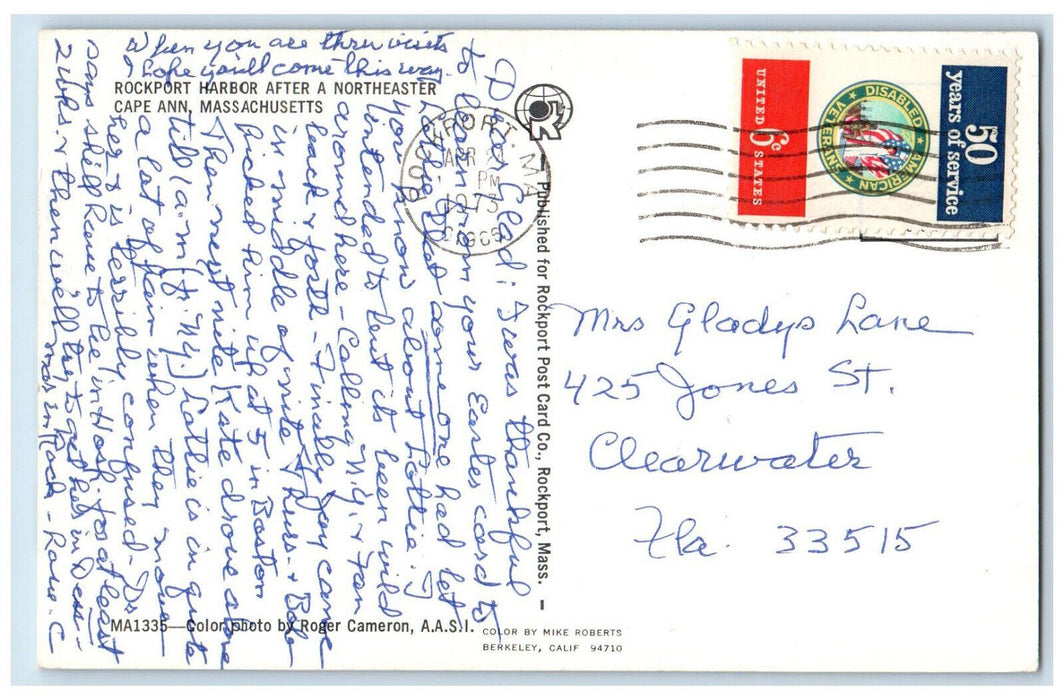 When you are thru visits
I hope you'll come this way.
ROCKPORT HARBOR AFTER A NORTHEASTER
CAPE ANN, MASSACHUSETTS
Dear Glad: I was thankful
to learn from your Easter card to
Lottie that someone had let
you know about Lottie. I
intended to but its been wild
around here - Calling N.Y. &
back & forth - Finally Jay came
in middle of nite Thurs. & Bob
picked him up at 5 in Boston
Then next nite Kate drove alone
till 1 a.m (fr N.Y.) Lottie is in quite
a lot of pain when they move
her & is terribly confused - Drs
says she'll have to be in Hosp. for at least
2 wks. & then we'll try to get her in
nrs in Rock - Love. C
MA1335—Color photo by Roger Cameron, A.A.S.I.
COLOR BY MIKE ROBERTS
BERKELEY, CALIF 94710
Published for Rockport Post Card Co., Rockport, Mass.
ROCKPORT, MA
APR 2
PM
1975
01966
50
years of service
DISABLED AMERICAN VETERANS
UNITED 6c STATES
Mrs Gladys Lane
425 Jones St.
Clearwater
Fla. 33515